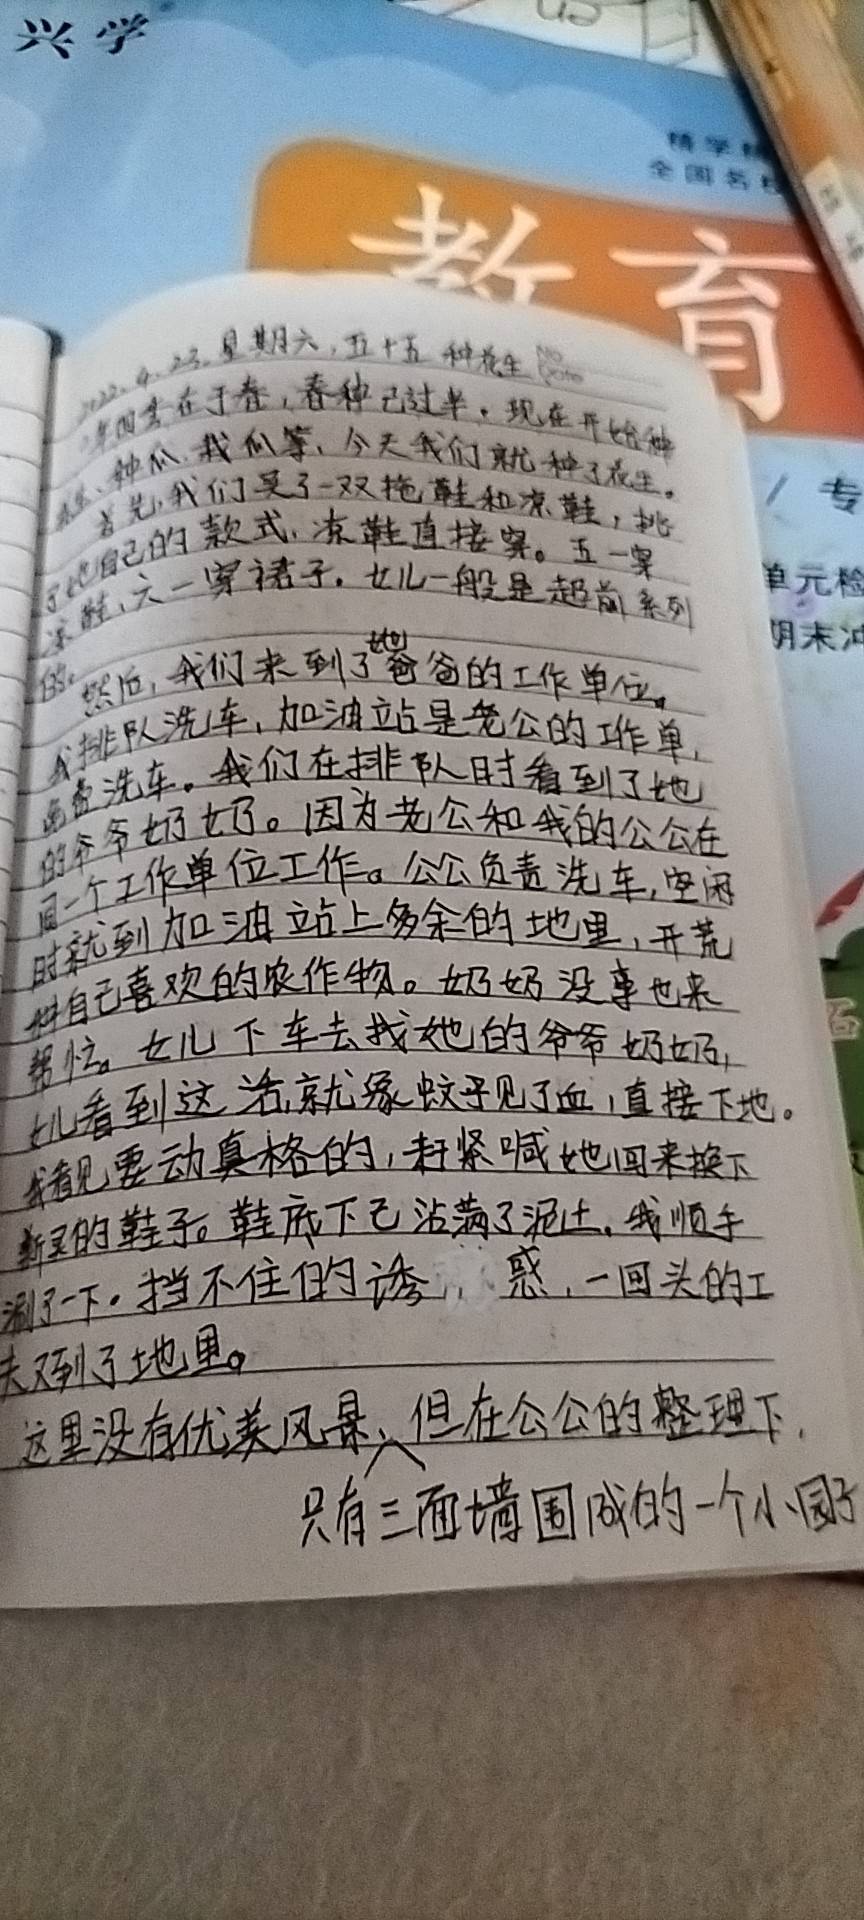 兴学
精学
全国名校
教育
专
单元检
期末冲
2022.4.23.星期六,五十五 种花生
No
Date
年四季在于春,春种已过半。现在开始种
花生、种瓜、栽瓜等,今天我们就种了花生。
首先,我们买了一双拖鞋和凉鞋,挑
了她自己的款式,凉鞋直接穿。五一穿
凉鞋,六一穿裙子。女儿一般是超前系列
的。
然后,我们来到了她爸爸的工作单位。
我排队洗车,加油站是老公的工作单,
免费洗车。我们在排队时看到了她
的爷爷奶奶。因为老公和我的公公在
同一个工作单位工作。公公负责洗车,空闲
时就到加油站上多余的地里,开荒
种自己喜欢的农作物。奶奶没事也来
帮忙。女儿下车去找她的爷爷奶奶,
女儿看到这活,就像蚊子见了血,直接下地。
我看见要动真格的,赶紧喊她回来换下
新买的鞋子。鞋底下已沾满了泥土。我顺手
涮了一下。挡不住的诱惑,一回头的工
夫又到了地里。
这里没有优美风景、但在公公的整理下,
只有三面墙围成的一个小园子